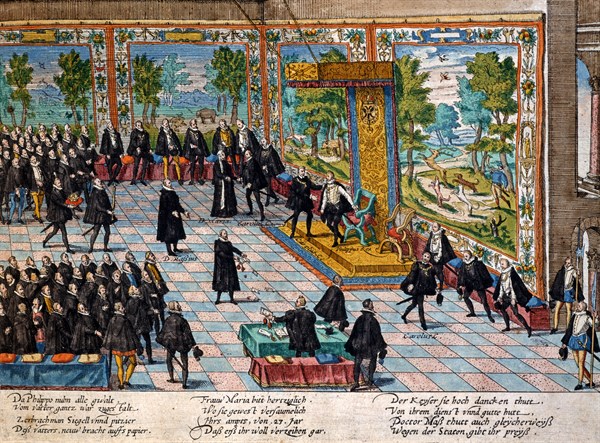 D. Masius
Carolus
Da Philippo nuhn alle gwalt
Von vatter gantz war zugestalt.
Zerbrachman Siegell vnnd pitzaer
Deß vatters, neuw bracht auffs papier.
Frauw Maria bitt hertziglich.
Wo sie gewest versaumelich
Ihrs ampts, von 23. Jar
Daß erß ihr woll verzeihen gar.
Der Keyser sie hoch dancken thutt
Von ihrem dienst vnnd gutte hutt,
Doctor Maß thutt auch gleycherweyß
Wegen der Staten, gibt ihr preyß